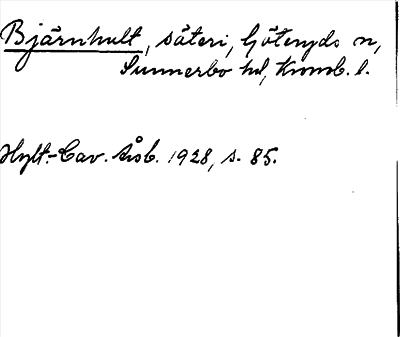 Bjärnhult, säteri, Göteryds sn,
Sunnerbo hd, Kronob. l.
Hylt.-Cav. årsb. 1928, s. 85.